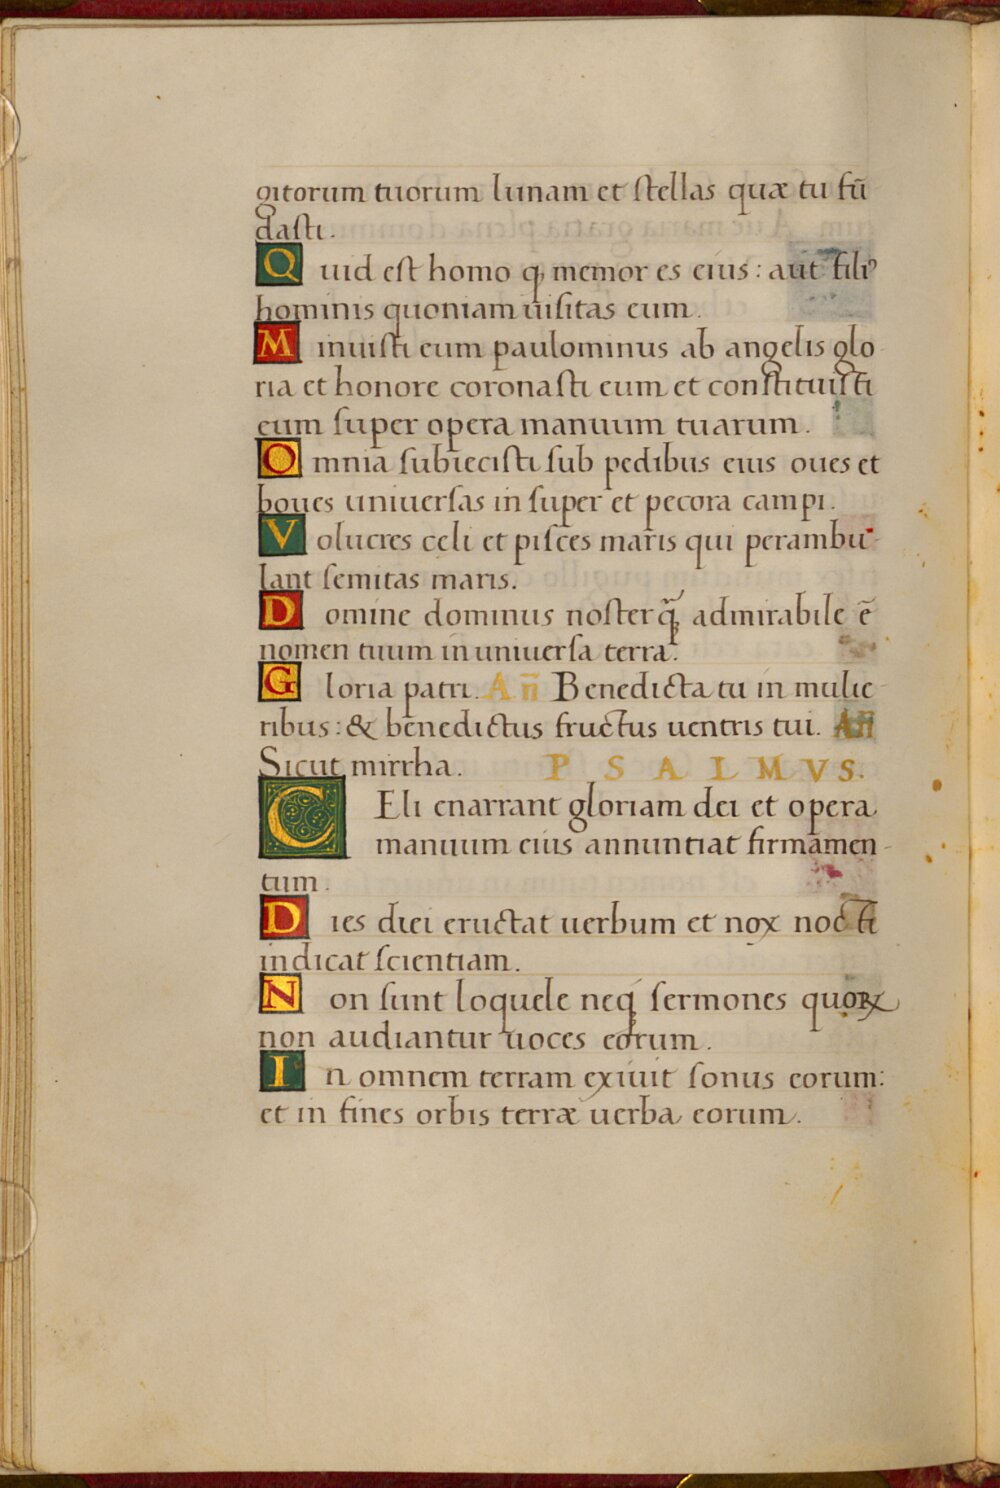 gitorum tuorum lunam et ſtellas quæ tu fū
daſti.
Quid eſt homo ꝙ memor es eius: aut filiꝰ
hominis quoniam uiſitas eum.
Minuiſti eum paulominus ab angelis glo
ria et honore coronaſti eum et conſtituiſti
eum ſuper opera manuum tuarum.
Omnia ſubieciſti ſub pedibus eius oues et
boues uniuerſas in ſuper et pecora campi.
Volucres celi et piſces maris qui perambu-
lant ſemitas maris.
Domine dominus noſter q̄ admirabile ē
nomen tuum in uniuerſa terra.
Gloria patri. Añ Benedicta tu in mulie
ribus: & benedictus fructus uentris tui. Añ
Sicut mirrha. PSALMVS.
CEli enarrant gloriam dei et opera
manuum eius annuntiat firmamen-
tum.
Dies diei eructat uerbum et nox nocti
indicat ſcientiam.
Non ſunt loquele neqꝫ ſermones quoꝝ
non audiantur uoces eorum.
In omnem terram exiuit ſonus eorum:
et in fines orbis terræ uerba eorum.